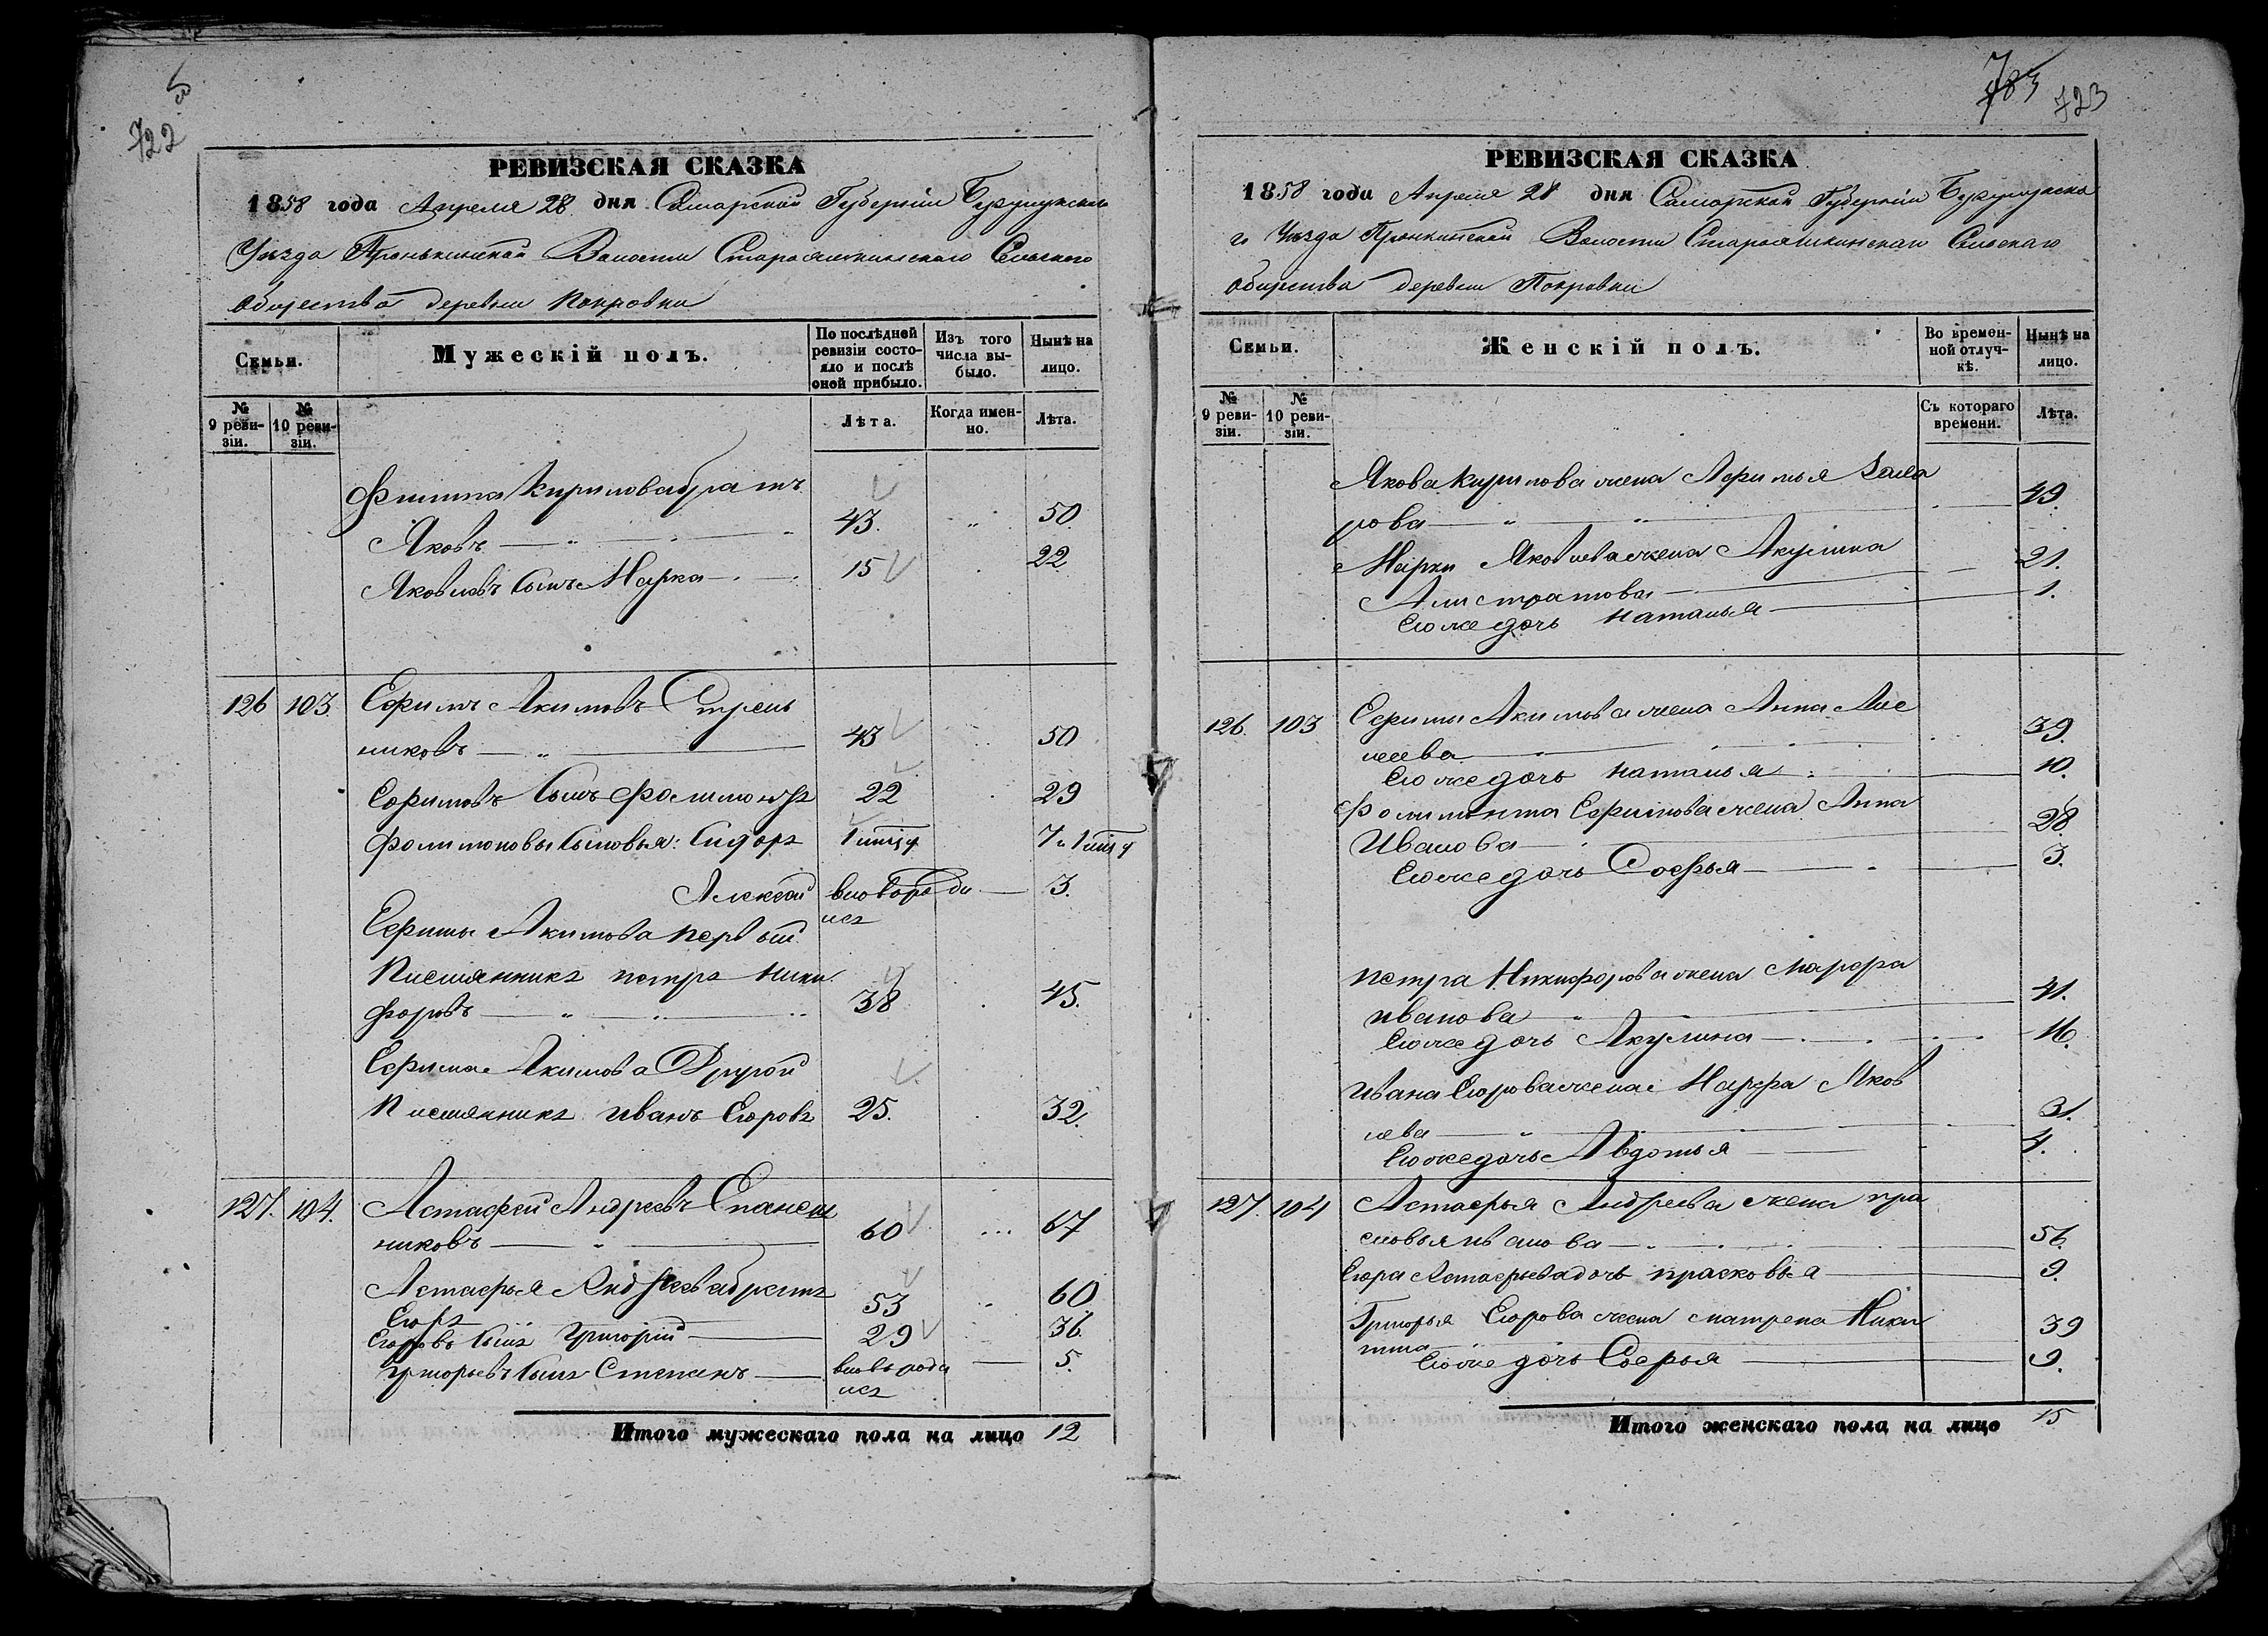 722
РЕВИЗСКАЯ СКАЗКА
1858 года Апреля 28 дня Самарской Губернiи
Уезда Пронькинской Волости Сельского
общества деревни Покровки
Семьи.
Мужескiй полъ.
По послѣдней ревизiи состояло и послѣ оной прибыло.
Изъ того числа выбыло.
Нынѣ на лицо.
№ 9 ревизiи.
№ 10 ревизiи.
Лѣта.
Когда именно.
Лѣта.
Кирилова братъ
Яковъ 43. 50
Яковлевъ сынъ Марка 15 22
126 103. Ефимъ Акимовъ Стрель
никовъ 43 50
Ефимовъ сынъ 22 29
сыновья: Сидоръ
Алексей 3.
Ефима Акимова первый
Племянникъ петръ Ники
форовъ 38 45.
Ефима Акимова Другой
Племянникъ иванъ Егоровъ 25. 32.
127. 104. Астафей Андреевъ
никовъ 60 67
Астафья Андреева братъ
Егоръ 53 60
Егоровъ сынъ Григорiй 29 36.
Григорьевъ сынъ Степанъ 5.
Итого мужескаго пола на лицо 12
783 723
РЕВИЗСКАЯ СКАЗКА
1858 года Апреля 28 дня Самарской Губернiи
го Уезда Пронкинской Волости Сельскаго
общества деревни Покровки
Семьи.
Женскiй полъ.
Во временной отлучкѣ.
Нынѣ на лицо.
№ 9 ревизiи.
№ 10 ревизiи.
Съ котораго времени.
Лѣта.
Якова Кирилова жена
рова 49.
Марки Яковлева жена Акулина
21.
Ею же дочь Наталья 1.
126. 103 Ефима Акимова жена Анна Але
39.
Ею же дочь наталья 10.
Ефимова жена Анна
Иванова 28.
Ею же дочь Софья 3.
петра Никифорова жена марфа
иванова 41.
Ею же дочь Акулина 16.
ивана Егорова жена Марфа Яков
лева 31.
Ею же дочь Авдотья 4.
127. 104 Астафья Андреева жена пра
сковья иванова 56.
Егора Астафьева дочь прасковья 9.
Григорья Егорова жена матрена Ники
тина 39
Ею же дочь Софья 9.
Итого женскаго пола на лицо 15